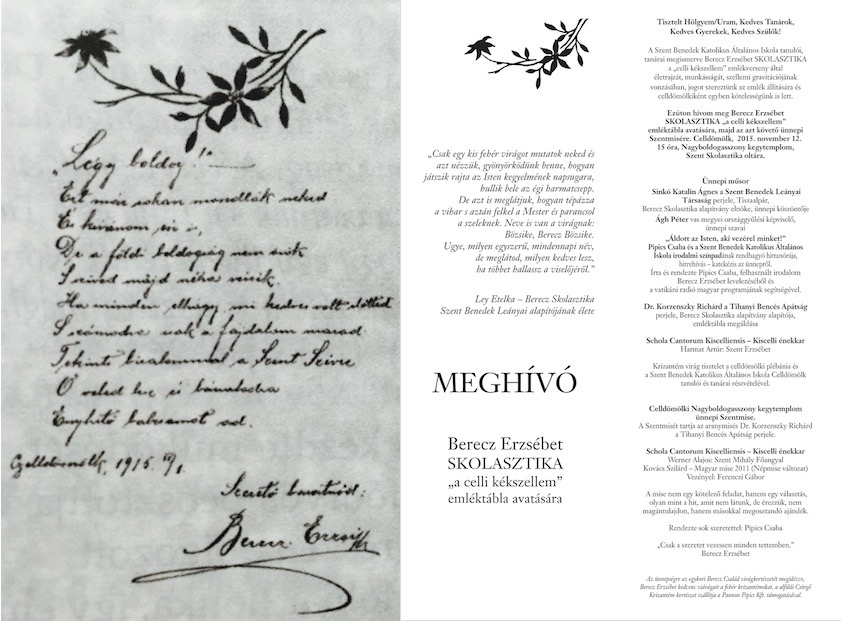 „Légy boldog!"
Ezt már sokan mondták neked
És kivánom én is,
De a földi boldogság nem sok
Szived majd néha vérzik.
Ha minden elhagy, mi kedves volt előtted
S számodra csak a fájdalom marad.
Tekints bizalommal a Szent Szívre
Ő veled lesz és bánatodra
Enyhitő balzsamot ad.
Czelldömölk, 1915.
Szerető barátnőd:
Berecz Erzsi
„Csak egy kis fehér virágot mutatok neked és
azt nézzük, gyönyörködünk benne, hogyan
játszik rajta az Isten kegyelmének napsugara,
hullik bele az égi harmatcsepp.
De azt is meglátjuk, hogyan tépázza
a vihar s aztán felkel a Mester és parancsol
a szeleknek. Neve is van a virágnak:
Bözsike, Berecz Bözsike.
Ugye, milyen egyszerű, mindennapi név,
de meglátod, milyen kedves lesz,
ha többet hallasz a viselőjéről."
Ley Etelka – Berecz Skolasztika
Szent Benedek Leányai alapítójának élete
MEGHÍVÓ
Berecz Erzsébet
SKOLASZTIKA
„a celli kékszellem"
emléktábla avatására
Tisztelt Hölgyem/Uram, Kedves Tanárok,
Kedves Gyerekek, Kedves Szülők!
A Szent Benedek Katolikus Általános Iskola tanulói,
tanárai megismerve Berecz Erzsébet SKOLASZTIKA
a „celli kékszellem" emlékverseny által
életrajzát, munkásságát, szellemi gravitációjának
vonzásában, jogot szereztünk az emlék állítására és
celldömölkiként egyben kötelességünk is lett.
Ezúton hívom meg Berecz Erzsébet
SKOLASZTIKA „a celli kékszellem"
emléktábla avatására, majd az azt követő ünnepi
Szentmisére. Celldömölk, 2015. november 12.
15 óra, Nagyboldogasszony kegytemplom,
Szent Skolasztika oltára.
Ünnepi műsor
Sinkó Katalin Ágnes a Szent Benedek Leányai
Társaság perjele, Tiszaalpár,
Berecz Skolasztika alapítvány elnöke, ünnepi köszöntője
Ágh Péter vas megyei országgyűlési képviselő,
ünnepi szavai
„Áldott az Isten, aki vezérel minket!"
Pipics Csaba és a Szent Benedek Katolikus Általános
Iskola irodalmi színpadának rendhagyó hittanórája,
hitrehívás – katekézis az ünnepről.
Írta és rendezte Pipics Csaba, felhasznált irodalom
Berecz Erzsébet levelezéséből és
a vatikáni rádió magyar programjának segítségével.
Dr. Korzenszky Richárd a Tihanyi Bencés Apátság
perjele, Berecz Skolasztika alapítvány alapítója,
emléktábla megáldása
Schola Cantorum Kiscelliensis – Kiscelli énekkar
Harmat Artúr: Szent Erzsébet
Krizantém virág tisztelet a celldömölki plébánia és
a Szent Benedek Katolikus Általános Iskola Celldömölk
tanulói és tanárai részvételével.
Celldömölki Nagyboldogasszony kegytemplom
ünnepi Szentmise.
A Szentmisét tartja az aranymisés Dr. Korzenszky Richárd
a Tihanyi Bencés Apátság perjele.
Schola Cantorum Kiscelliensis – Kiscelli énekkar
Werner Alajos: Szent Mihály Főangyal
Kovács Szilárd – Magyar mise 2011 (Népmise változat)
Vezényel: Ferenczi Gábor
A mise nem egy kötelező feladat, hanem egy választás,
olyan mint a hit, amit nem látunk, de érezzük, nem
magántulajdon, hanem másokkal megosztandó ajándék.
Rendezte sok szeretettel: Pipics Csaba
„Csak a szeretet vezessen minden tettemben."
Berecz Erzsébet
Az ünnepségre az egykori Berecz Család virágkertészetét megidézve,
Berecz Erzsébet kedvenc virágait a fehér krizantémokat, a alföldi Csörgő
Krizantém kertészet szállítja a Pannon Pipics Kft. támogatásával.